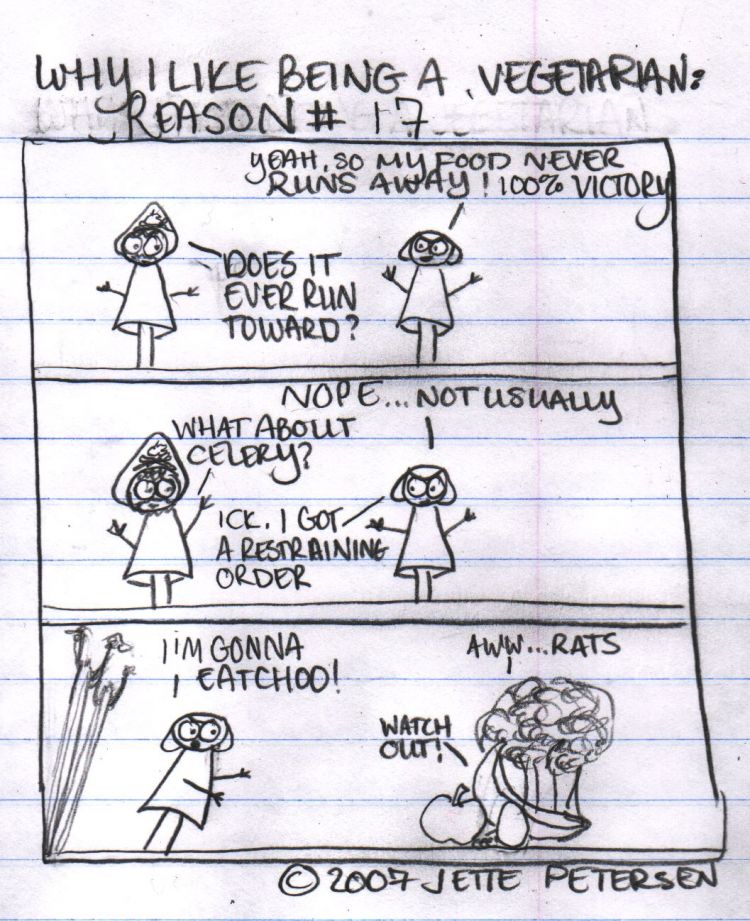 WHY I LIKE BEING A VEGETARIAN:
REASON # 17
YEAH, SO MY FOOD NEVER
RUNS AWAY! 100% VICTORY
DOES IT
EVER RUN
TOWARD?
NOPE...NOT USUALLY
WHAT ABOUT
CELERY?
ICK. I GOT
A RESTRAINING
ORDER
I'M GONNA
EATCHOO!
AWW...RATS
WATCH
OUT!
© 2007 JETTE PETERSEN